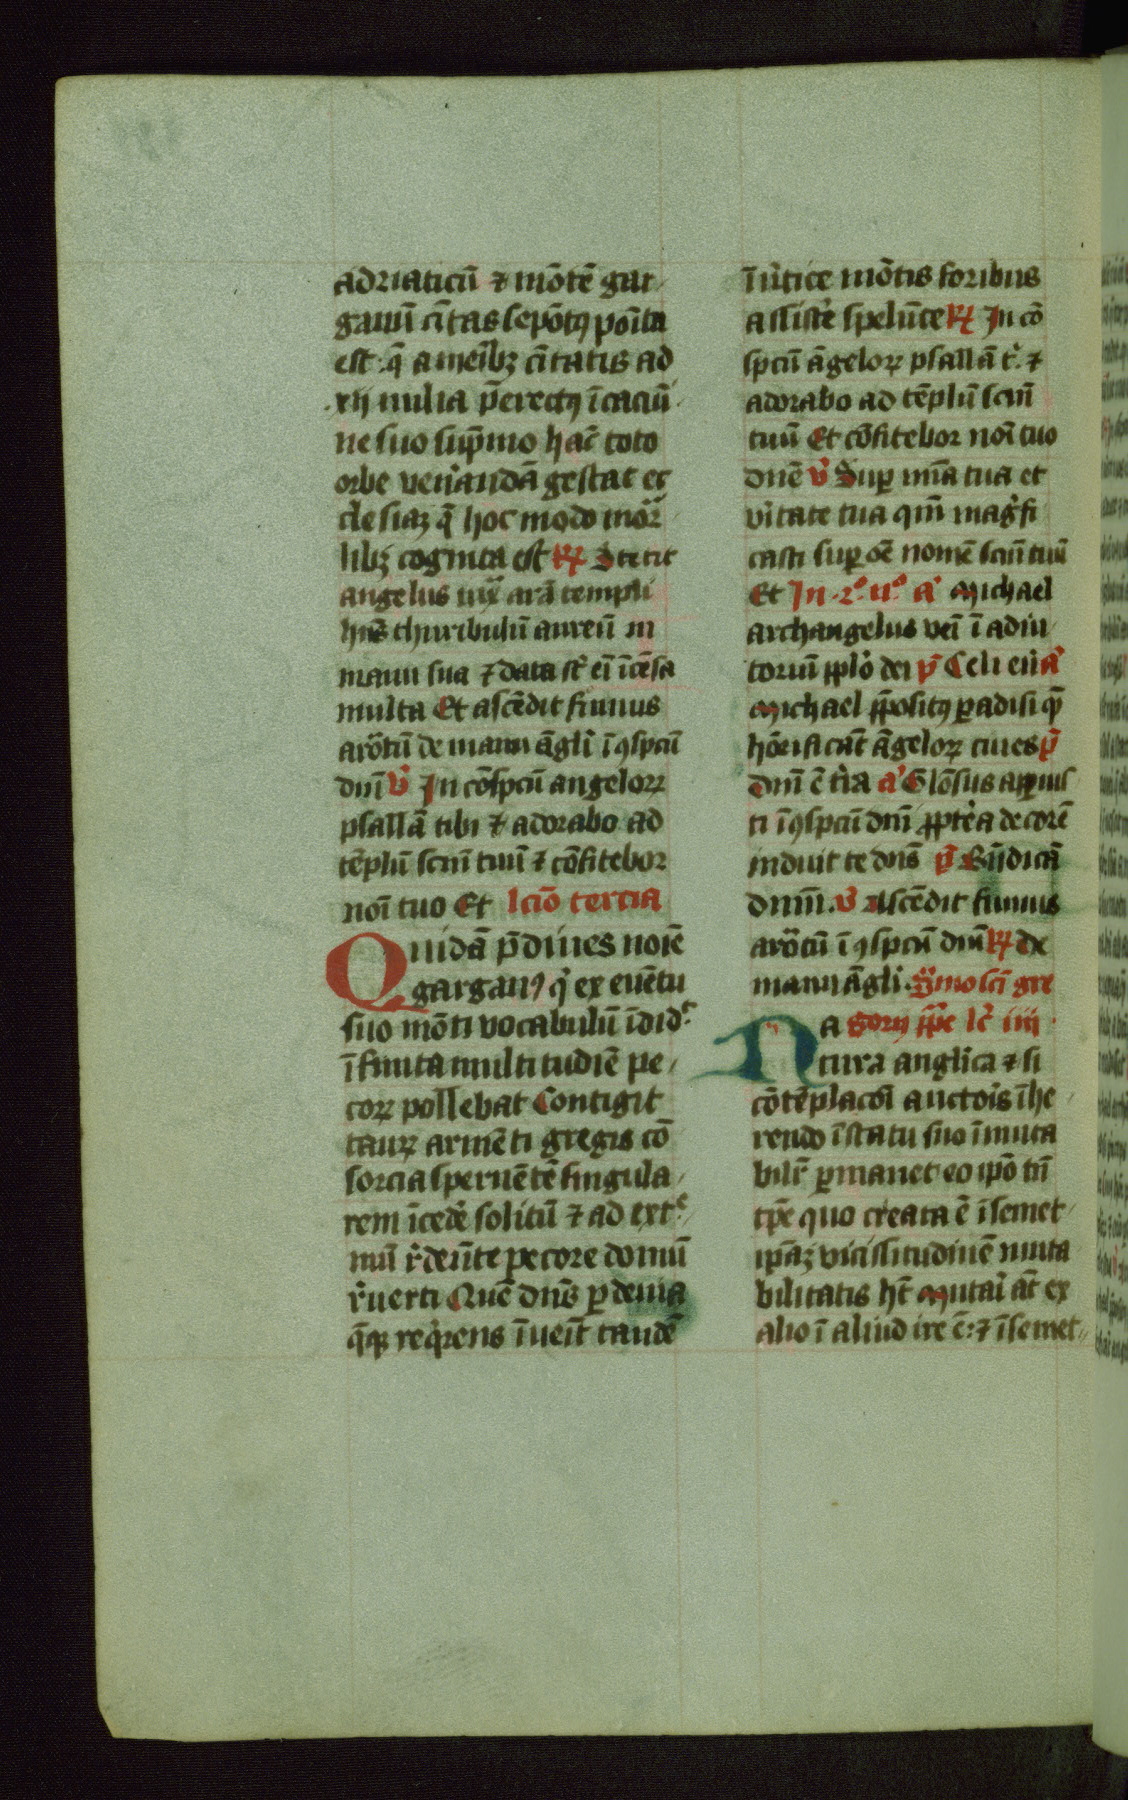 adriaticū ⁊ mōtē gar
ganū ciūtas sepōtꝰ poīta
est q̄ a menībꝫ ciūtatis ad
xij milia p̄erectꝰ ī cacū
ne suo sup̄mo hāc toto
orbe ven̄andā gestat ec
cl̄esiaꝫ q̄ hoc modo mōr
libꝫ cognita est ℟ Stetit
angelus iux̄ arā templi
hn̄s thuribulū aureū in
manu sua ⁊ data st̄ ei īcēsa
multa Et ascēdit fumus
arōtū de manu āgl̄i ī ꝯspcū
dnī v̄ In cōspcū angeloꝝ
psallā tibi ⁊ adorabo ad
tēplū scm̄ tuū ⁊ cōfitebor
noī tuo Et lcīo tercia
Quidā p̄diues noīe
garganꝰ q̄ ex euētu
suo mōti vocabulū īdid
īfinita multitudīe pe
coꝝ pollebat Contigit
tauꝝ armēti gregis cō
sorcia spernētē singula
rem īcedē solitū ⁊ ad ext
mū r̄deūte pecore domū
r̄uerti Quē dn̄s ꝑ deuia
q̄qꝫ req̄rens īueīt tandē
ī v̄tice mōtis foribus
assistē spelūce ℟ In cō
spcū āgeloꝝ psallā t̄ ⁊
adorabo ad tēplū scm̄
tuū Et cōfitebor noī tuo
dn̄e v̄ Suꝑ mīa tua et
v̄itate tua qm̄ maḡfi
casti suꝑ oē nomē scm̄ tuū
Et In 2º nº a᷑ Michael
archangelus venī ī adiu
torium pplō dei p̄ Celi en̄ a᷑
Michael p̄positꝰ ꝑadisi quē
hōrificāt āgeloꝝ ciues p̄
Dnī ē t̄ra a᷑ Glōsus apparuis
ti ī ꝯspcū dnī ꝓpt̄ea decorē
induit te dn̄s p̄ Bn̄dicā
dnm̄ v̄ Ascēdit fumus
arōtū ī ꝯspcū dnī ℟ de
manu āgli Sm̄o sci gre
Na gorij ppe lc̄ iiij
tura anglica ⁊ si
cōtēplacōi auctoīs īhe
rendo ī statu suo īmuta
bilr̄ ꝑmanet eo ipō tn̄
tp̄e quo creata ē ī semet
ipāꝫ vicissitudinē muta
bilitatis ht̄ Mutaī āt ex
alio ī aliud ire ē ⁊ ī semet